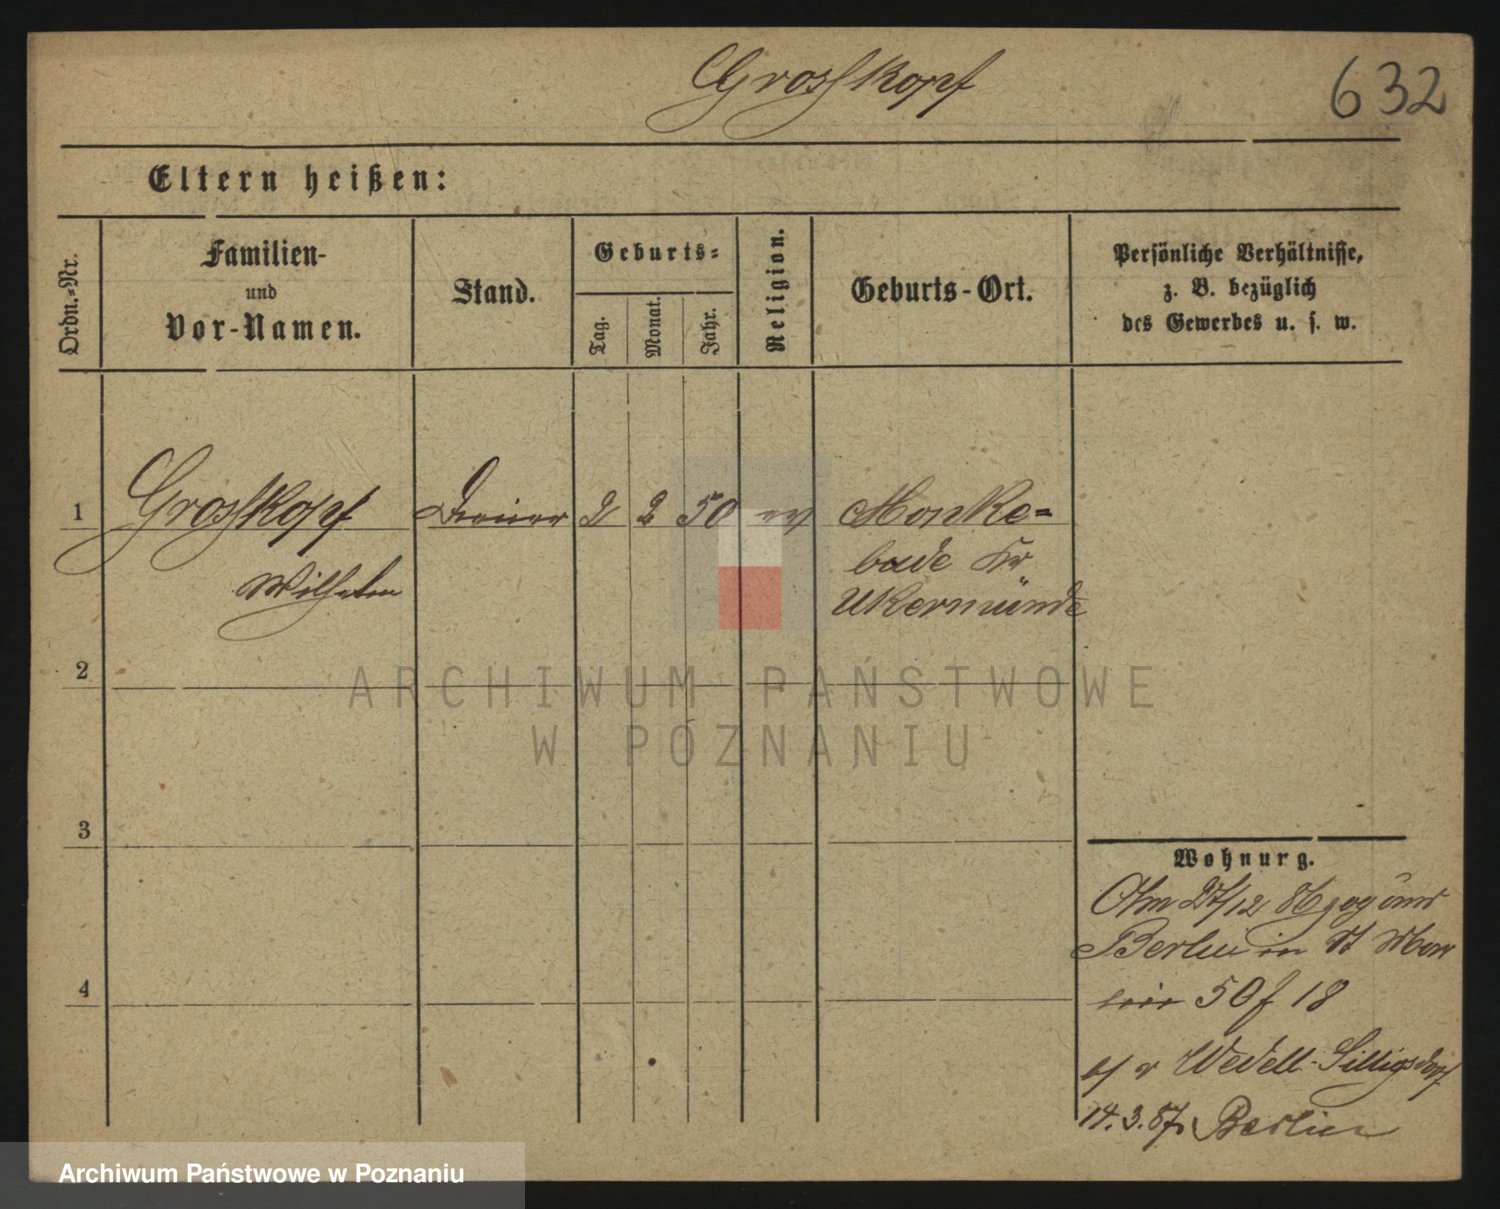 Großkopf
632
Eltern heißen:
Ordn.-Nr.
Familien-
und
Vor-Namen.
Stand.
Geburts-
Tag.
Monat.
Jahr.
Religion.
Geburts-Ort.
Persönliche Verhältnisse,
z. B. bezüglich
des Gewerbes u. s. w.
1 Großkopf Diener 2 2 50 ev Monke=
bude Kr
Wilhelm
Ukermünde
2
3
4
Wohnung.
Am 27/12 86 zog
Berlin in St Mar
50 f 18
v Wedell-Silligsdorf
14.3.87 Berlin
ARCHIWUM PAŃSTWOWE
W POZNANIU
Archiwum Państwowe w Poznaniu